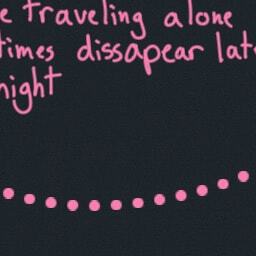 e traveling alone
times dissapear lat
night